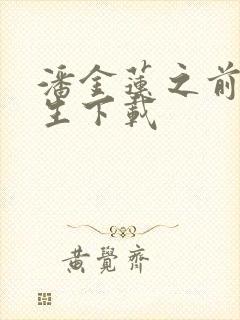 潘金蓮之前
生下載
黃覺齊